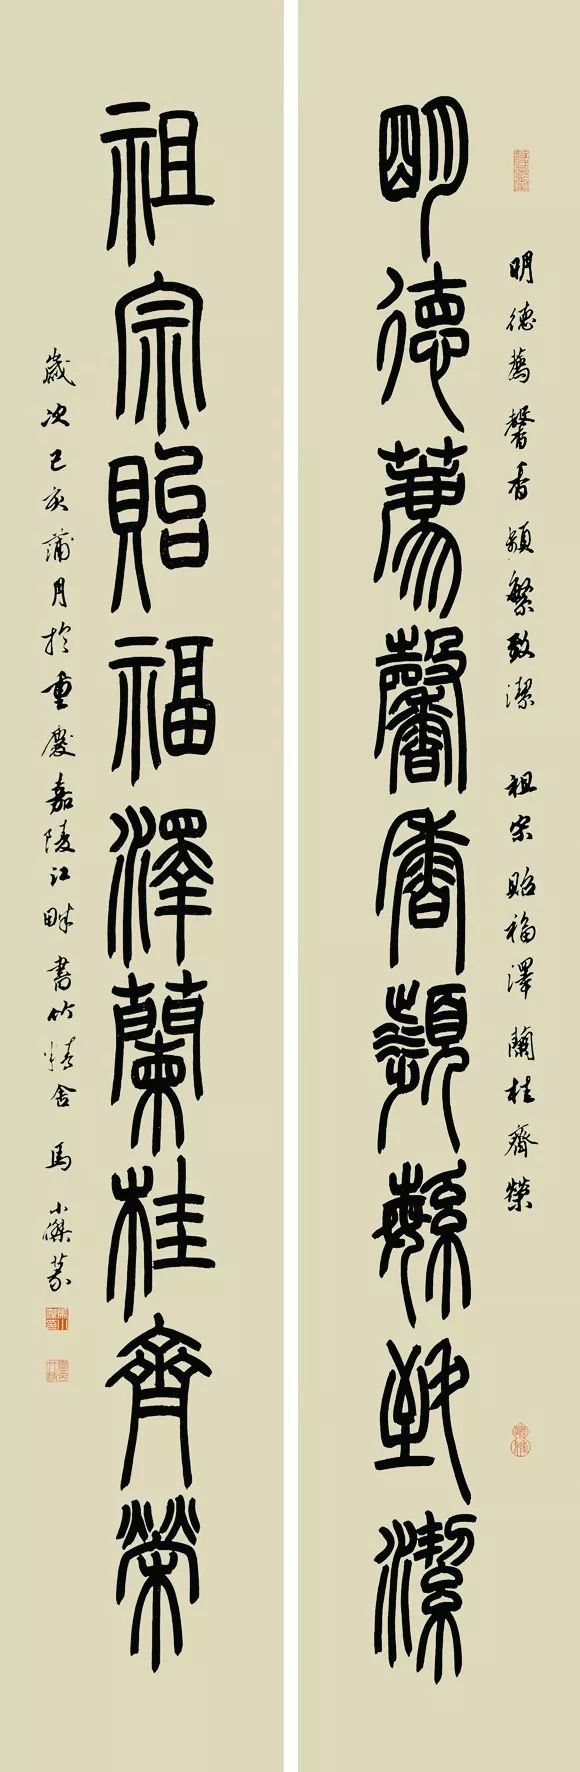 明德薦馨香蘋繁致潔 祖宗貽福澤蘭桂齊榮
明德薦馨香蘋繁致潔
祖宗貽福澤蘭桂齊榮
歲次己亥蒲月於重慶嘉陵江畔書竹精舍 馬小傑篆